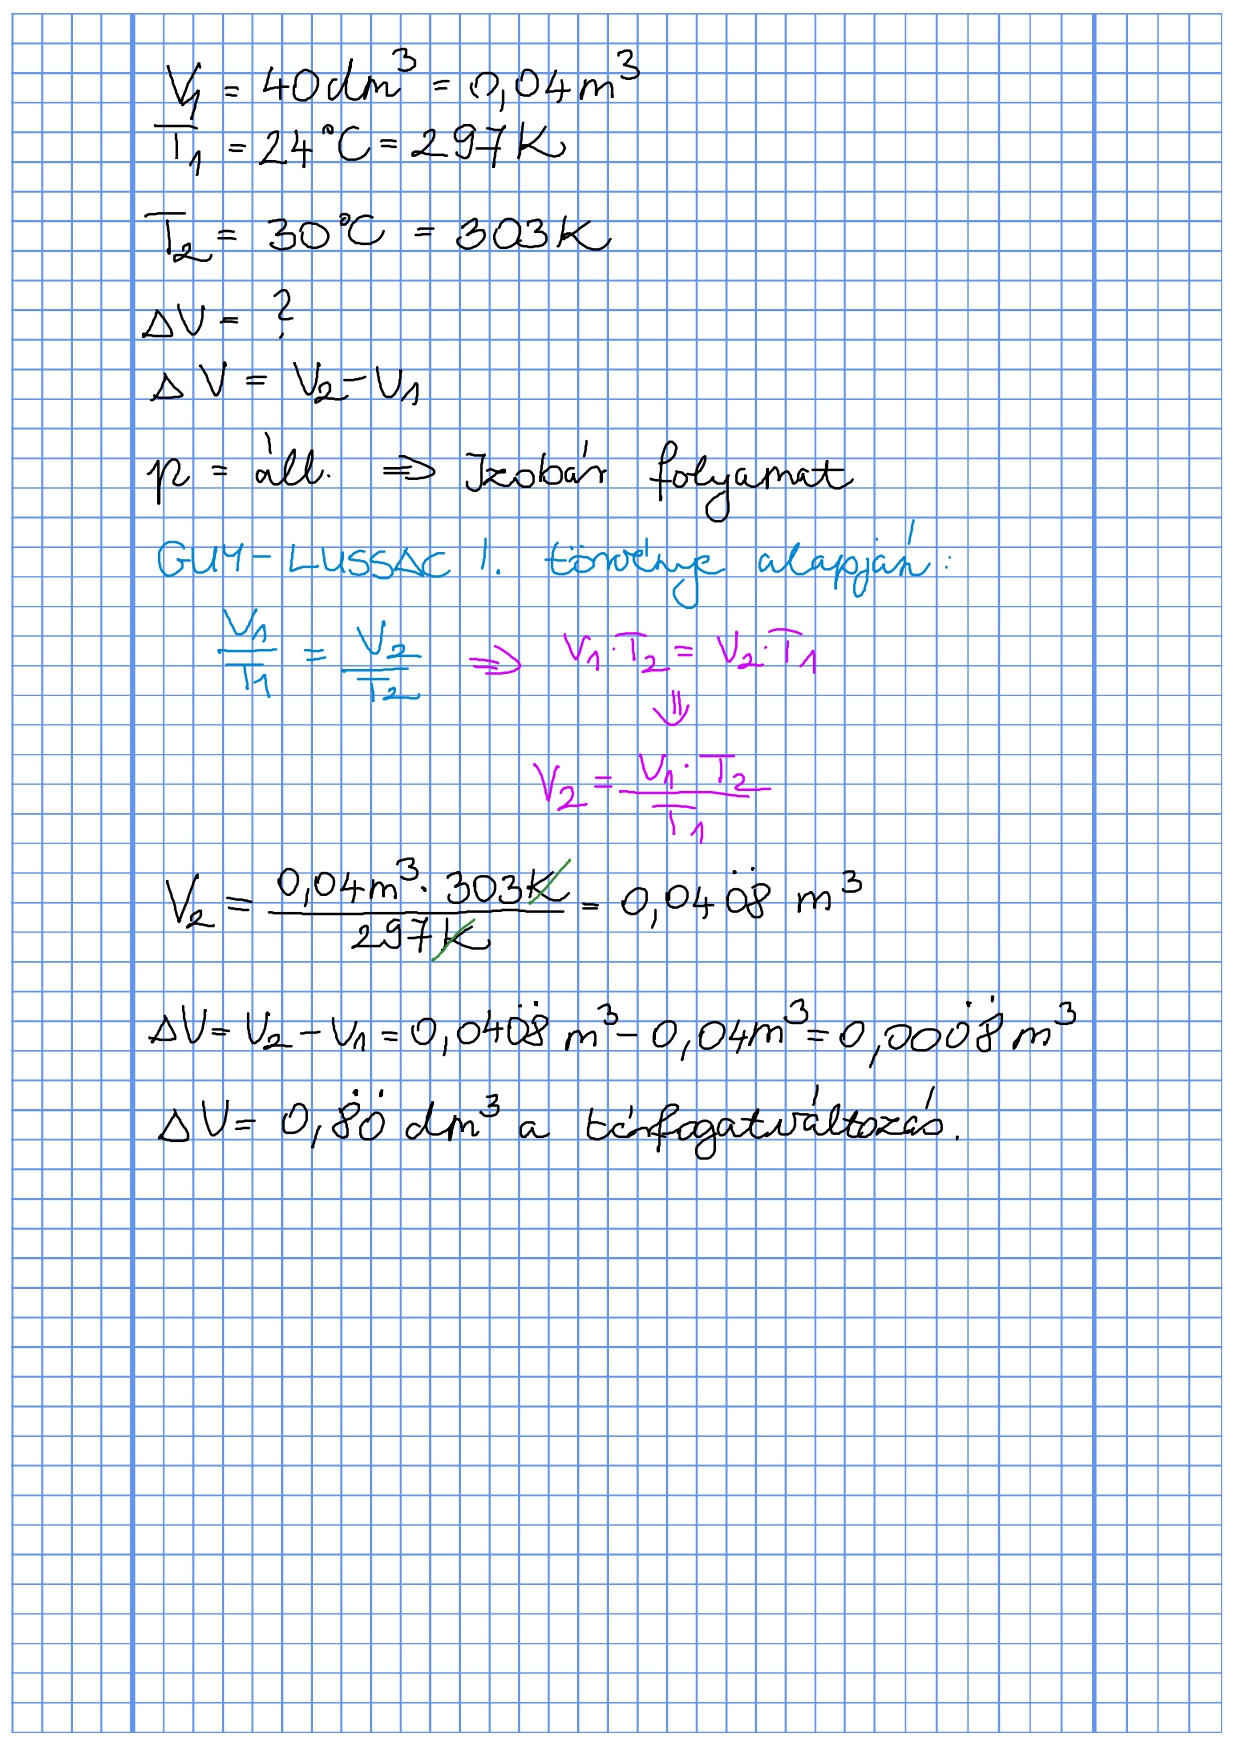 V₁ = 40 dm³ = 0,04 m³
T₁ = 24°C = 297 K
T₂ = 30°C = 303 K
ΔV = ?
ΔV = V₂ - V₁
p = áll. ⇒ Izobár folyamat
GUY-LUSSAC I. törvénye alapján:
V₁/T₁ = V₂/T₂ ⇒ V₁·T₂ = V₂·T₁
⇓
V₂ = V₁·T₂/T₁
V₂ = 0,04 m³ · 303 K / 297 K = 0,040̇8̇ m³
ΔV = V₂ - V₁ = 0,040̇8̇ m³ - 0,04 m³ = 0,000̇8̇ m³
ΔV = 0,8̇0̇ dm³ a térfogatváltozás.